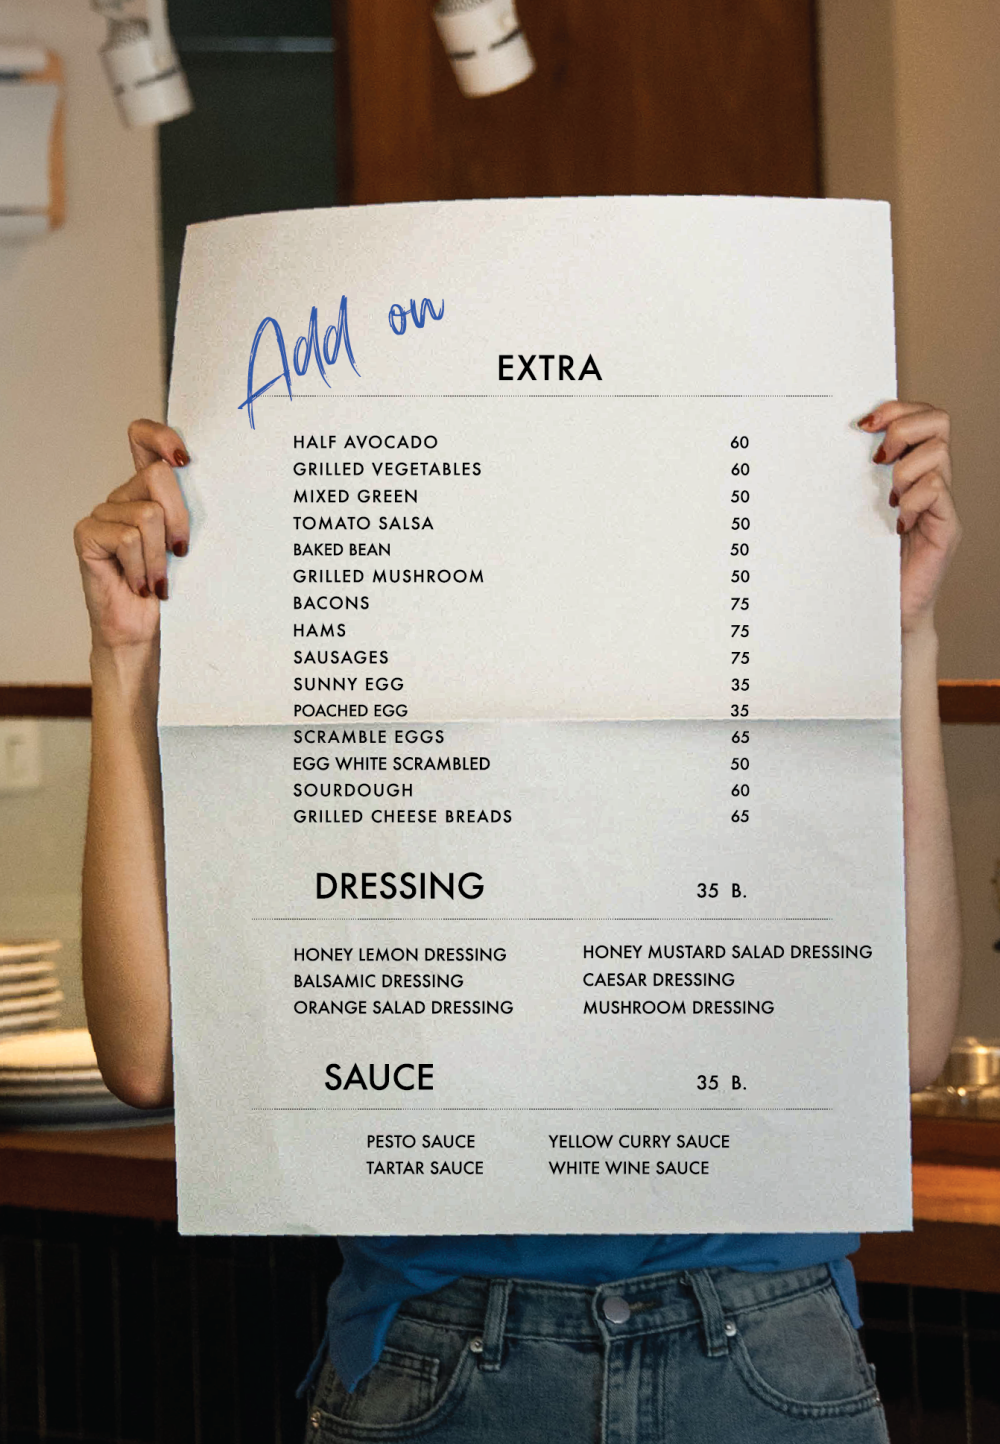 Add on
EXTRA
HALF AVOCADO 60
GRILLED VEGETABLES 60
MIXED GREEN 50
TOMATO SALSA 50
BAKED BEAN 50
GRILLED MUSHROOM 50
BACONS 75
HAMS 75
SAUSAGES 75
SUNNY EGG 35
POACHED EGG 35
SCRAMBLE EGGS 65
EGG WHITE SCRAMBLED 50
SOURDOUGH 60
GRILLED CHEESE BREADS 65
DRESSING 35 B.
HONEY LEMON DRESSING HONEY MUSTARD SALAD DRESSING
BALSAMIC DRESSING CAESAR DRESSING
ORANGE SALAD DRESSING MUSHROOM DRESSING
SAUCE 35 B.
PESTO SAUCE YELLOW CURRY SAUCE
TARTAR SAUCE WHITE WINE SAUCE